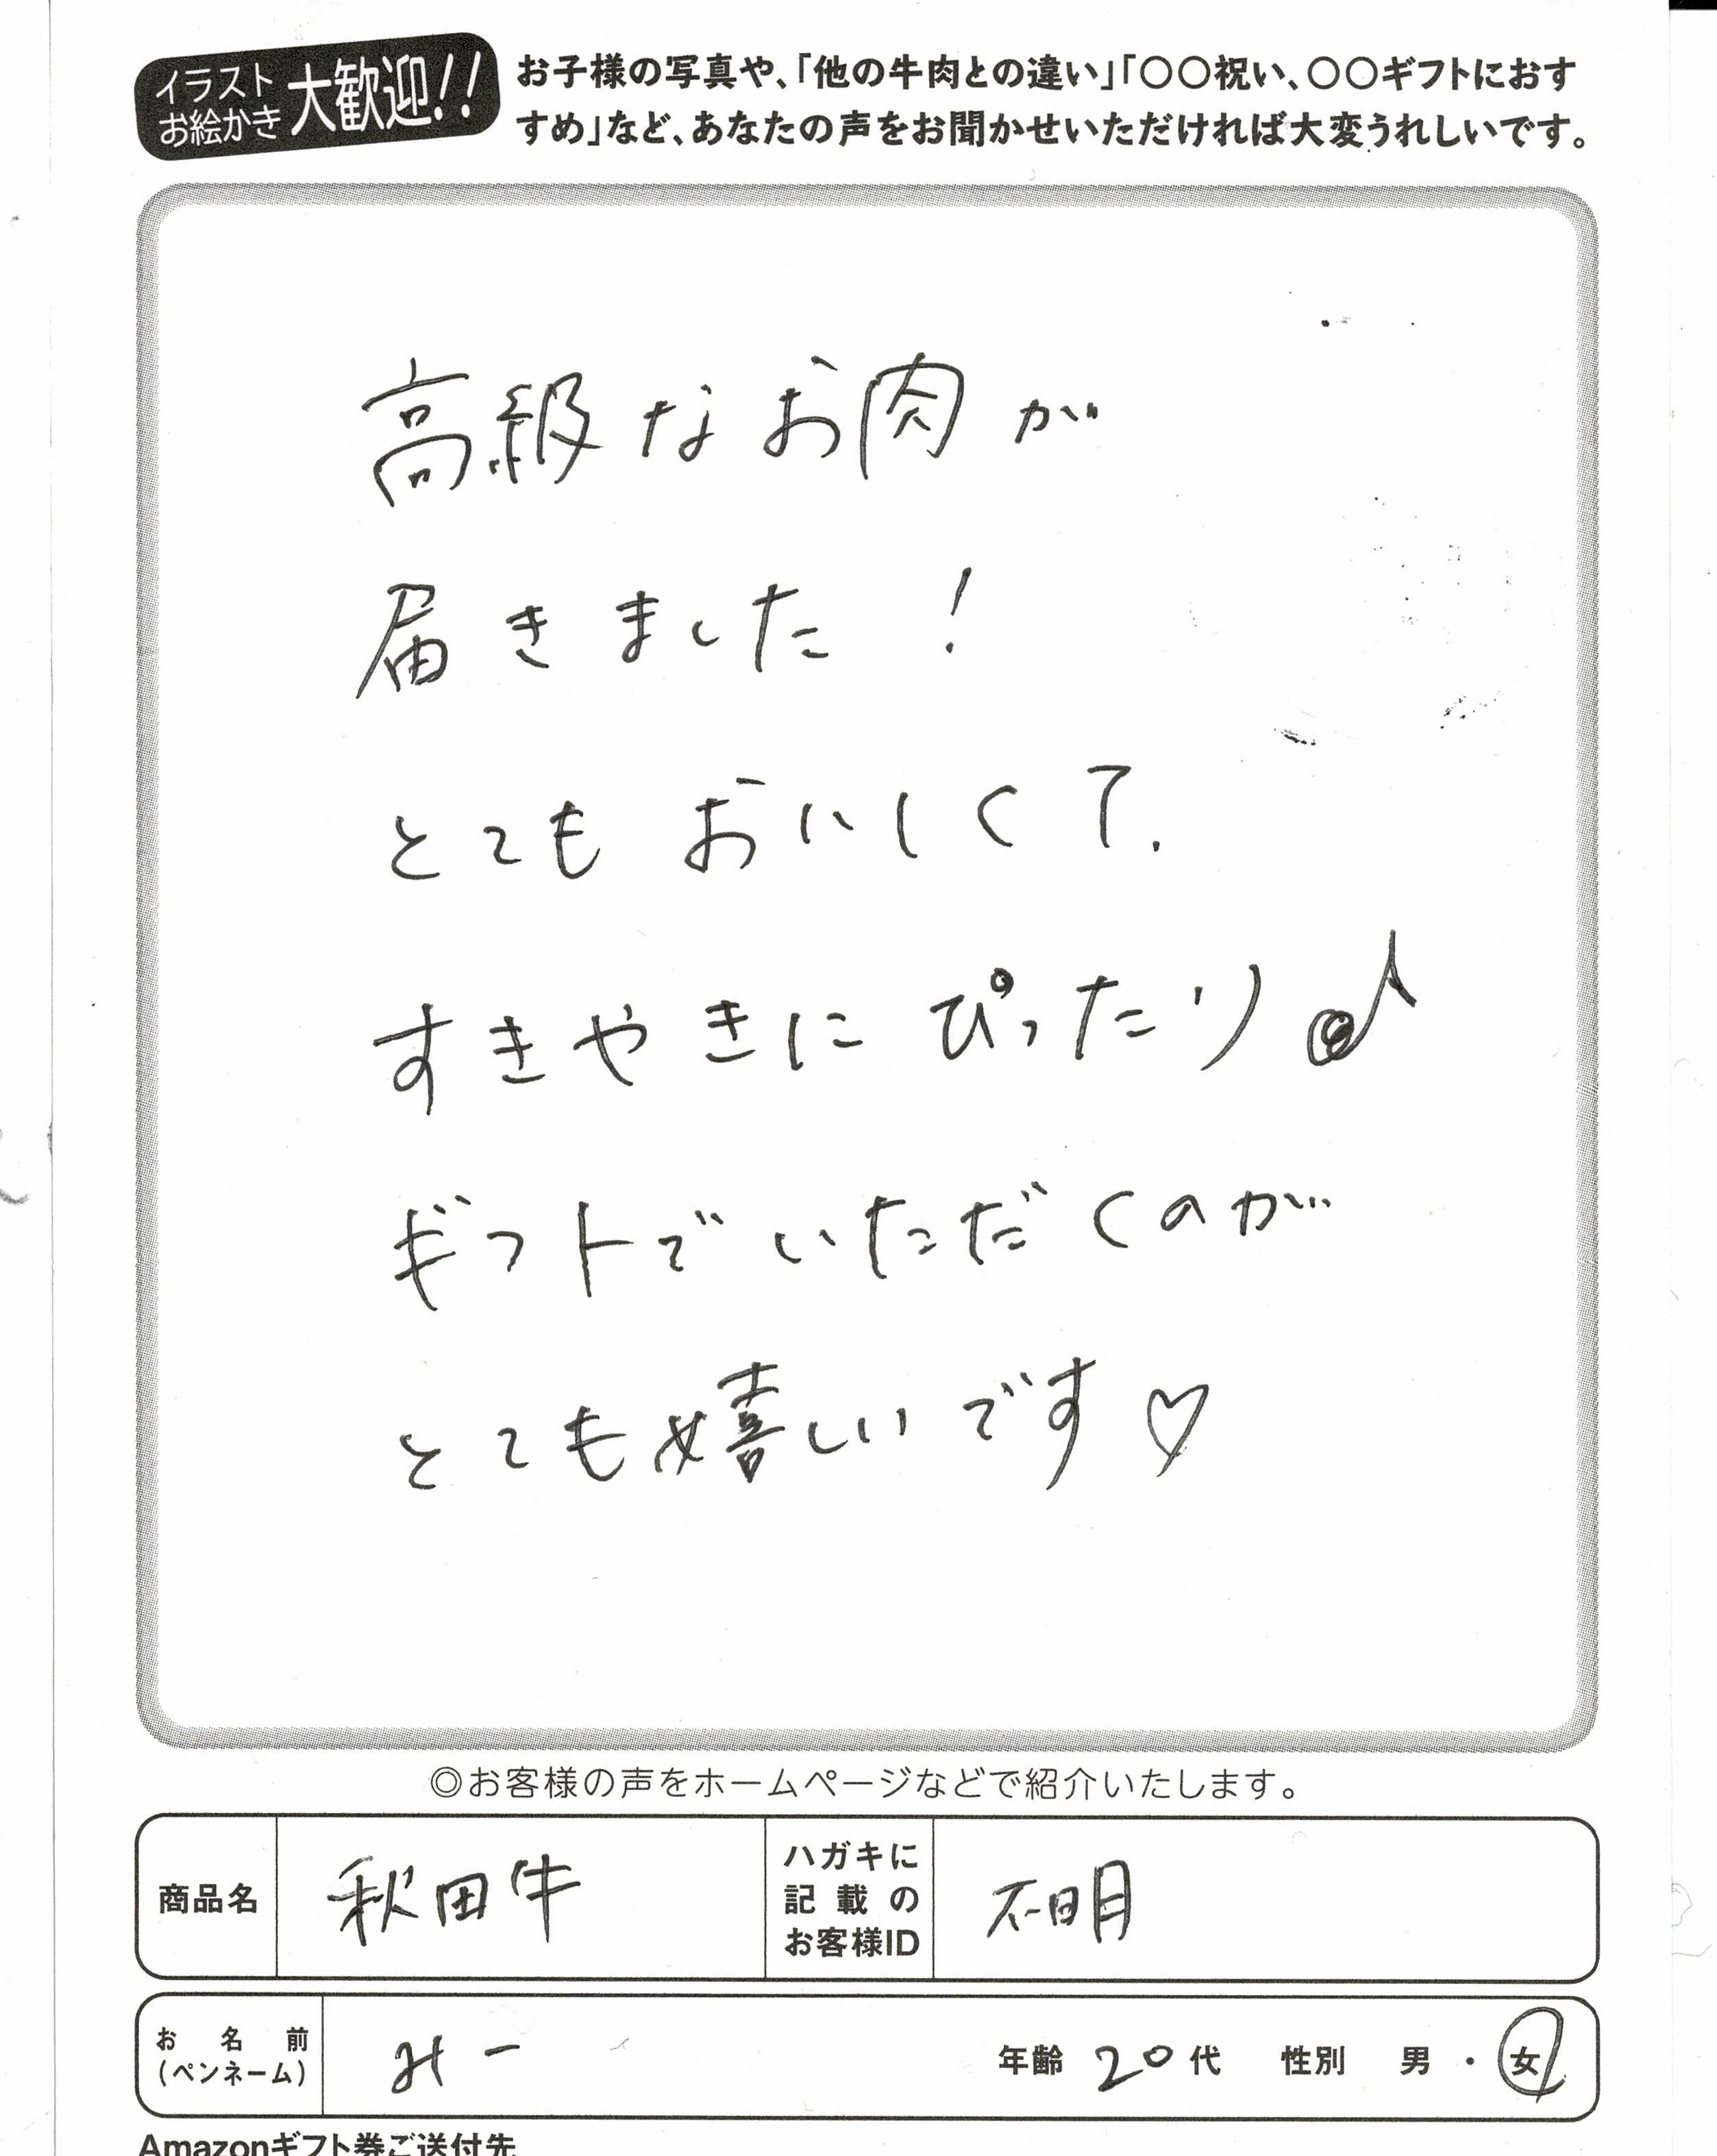 イラスト
お絵かき
大歓迎!!
お子様の写真や、「他の牛肉との違い」「〇〇祝い、〇〇ギフトにおす
すめ」など、あなたの声をお聞かせいただければ大変うれしいです。
高級なお肉が
届きました！
とてもおいしくて、
すきやきにぴったり♪
ギフトでいただくのが
とても嬉しいです♡
◎お客様の声をホームページなどで紹介いたします。
商品名
秋田牛
ハガキに
記載の
お客様ID
不明
お名前
(ペンネーム)
みー
年齢 20代 性別 男・女
Amazonギフト券ご送付先